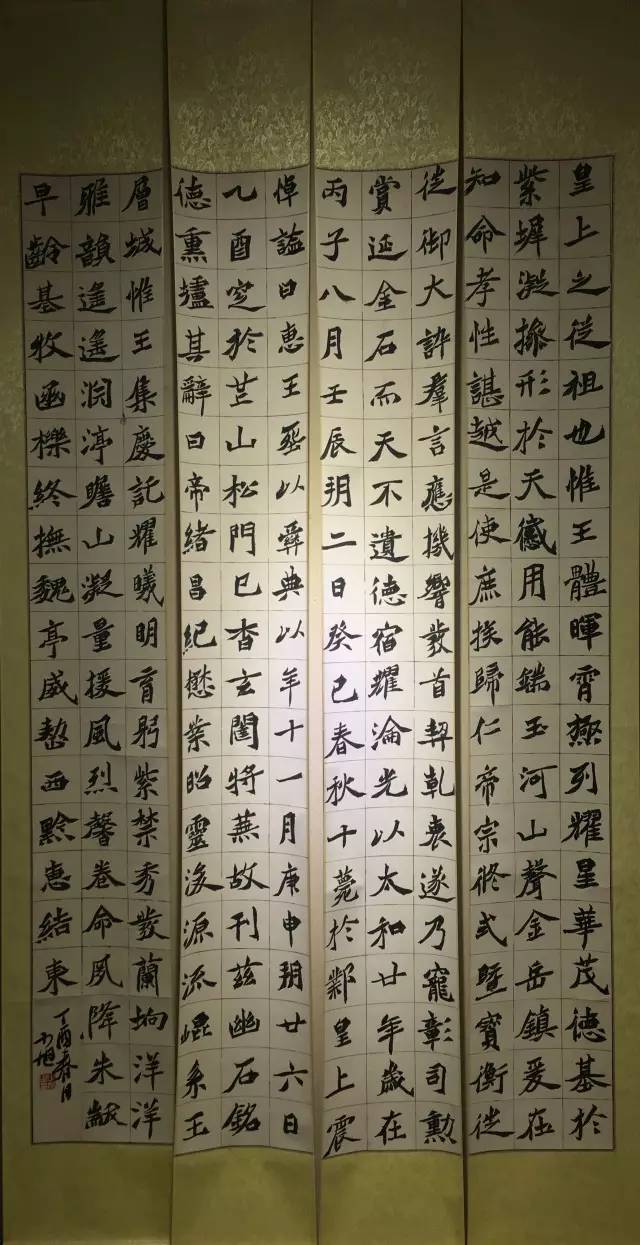 皇上之從祖也惟王體暉霄極列耀星華茂德基於
紫墀凝操形於天感用能端玉河山聲金岳鎮爰在
知命孝性諶越是使庶族歸仁帝宗攸式暨寶衡徙
徙御大訊羣言應機響發首契乾衷遂乃寵彰司勳
賞延金石而天不遺德宿耀淪光以太和廿年歲在
丙子八月壬辰朔二日癸巳春秋十薨於鄴皇上震
悼謚曰惠王葬以彝典以年十一月庚申朔廿六日
乙酉窆於芒山松門已杳玄闥將蕪故刊茲幽石銘
德熏壚其辭曰帝緒昌紀懋業昭靈浚源流崐系玉
層城惟王集慶託耀曦明育躬紫禁秀發蘭坰洋洋
雅韻遙遙淵渟瞻山凝量援風烈馨卷命夙降朱黻
早齡基牧函櫟終撫魏亭威整西黔惠結東
丁酉春月